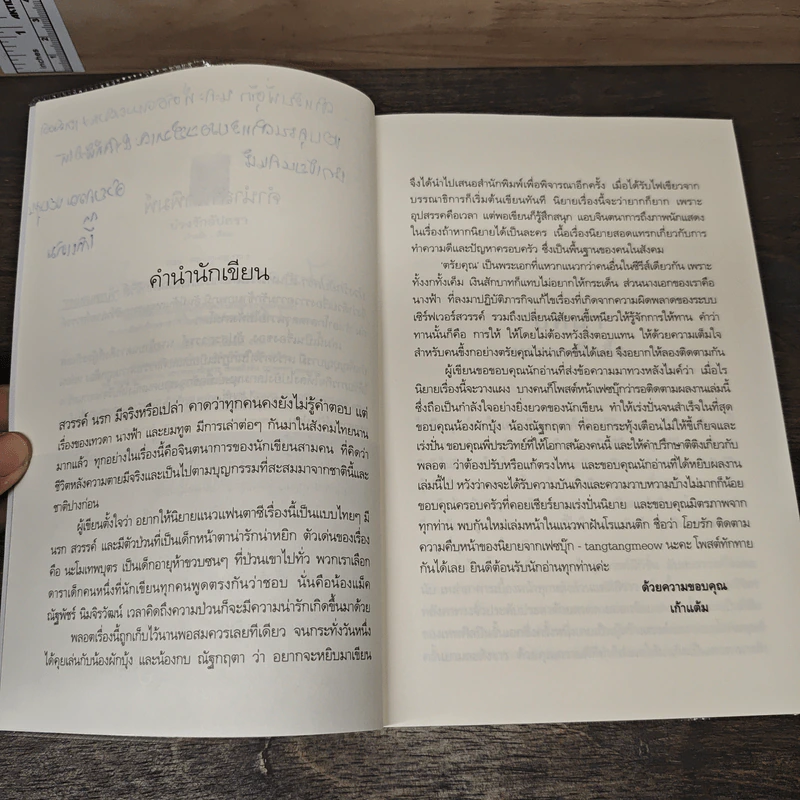 คำนำนักเขียน
สวรรค์ นรก มีจริงหรือเปล่า คาดว่าทุกคนคงยังไม่รู้คำตอบ แต่
เรื่องของเทวดา นางฟ้า และยมทูต มีการเล่าต่อๆ กันมาในสังคมไทยนาน
มากแล้ว ทุกอย่างในเรื่องนี้คือจินตนาการของนักเขียนสามคน ที่คิดว่า
ชีวิตหลังความตายมีจริงและเป็นไปตามบุญกรรมที่สะสมมาจากชาตินี้และ
ชาติปางก่อน
ผู้เขียนตั้งใจว่า อยากให้นิยายแนวแฟนตาซีเรื่องนี้เป็นแบบไทยๆ มี
นรก สวรรค์ และมีตัวป่วนที่เป็นเด็กหน้าตาน่ารักน่าหยิก ตัวเด่นของเรื่อง
คือ นะโมเทพบุตร เป็นเด็กอายุห้าขวบซนๆ ที่ป่วนเขาไปทั่ว พวกเราเลือก
ดาราเด็กคนหนึ่งที่นักเขียนทุกคนพูดตรงกันว่าชอบ นั่นคือน้องแม็ค
ณัฐพัชร์ นิมจิรวัฒน์ เวลาคิดถึงความป่วนก็จะมีความน่ารักเกิดขึ้นมาด้วย
พลอตเรื่องนี้ถูกเก็บไว้นานพอสมควรเลยทีเดียว จนกระทั่งวันหนึ่ง
ได้คุยเล่นกับน้องผักบุ้ง และน้องกบ ณัฐกฤตา ว่า อยากจะหยิบมาเขียน
จึงได้นำไปเสนอสำนักพิมพ์เพื่อพิจารณาอีกครั้ง เมื่อได้รับไฟเขียวจาก
บรรณาธิการก็เริ่มต้นเขียนทันที นิยายเรื่องนี้จะว่ายากก็ยาก เพราะ
อุปสรรคคือเวลา แต่พอเขียนก็รู้สึกสนุก แอบจินตนาการถึงภาพนักแสดง
ในเรื่องถ้าหากนิยายได้เป็นละคร เนื้อเรื่องนิยายสอดแทรกเกี่ยวกับการ
ทำความดีและปัญหาครอบครัว ซึ่งเป็นพื้นฐานของคนในสังคม
'ตรัยคุณ' เป็นพระเอกที่แหวกแนวกว่าคนอื่นในซีรีส์เดียวกัน เพราะ
ทั้งงกทั้งเค็ม เงินสักบาทก็แทบไม่อยากให้กระเด็น ส่วนนางเอกของเราคือ
นางฟ้า ที่ลงมาปฏิบัติภารกิจแก้ไขเรื่องที่เกิดจากความผิดพลาดของระบบ
เซิร์ฟเวอร์สวรรค์ รวมถึงเปลี่ยนนิสัยคนขี้เหนียวให้รู้จักการให้ทาน คำว่า
ทานนั้นก็คือ การให้ ให้โดยไม่ต้องหวังสิ่งตอบแทน ให้ด้วยความเต็มใจ
สำหรับคนขี้งกอย่างตรัยคุณไม่น่าเกิดขึ้นได้เลย จึงอยากให้ลองติดตามกัน
ผู้เขียนขอขอบคุณนักอ่านที่ส่งข้อความมาทางหลังไมค์ว่า เมื่อไร
นิยายเรื่องนี้จะวางแผง บางคนก็โพสต์หน้าเฟซบุ๊กว่ารอติดตามผลงานเล่มนี้
ซึ่งถือเป็นกำลังใจอย่างยิ่งยวดของนักเขียน ทำให้เร่งปั่นจนสำเร็จในที่สุด
ขอบคุณน้องผักบุ้ง น้องณัฐกฤตา ที่คอยกระทุ้งเตือนไม่ให้ขี้เกียจและ
เร่งปั่น ขอบคุณพี่ประวิทย์ที่ให้โอกาสน้องคนนี้ และให้คำปรึกษาติติงเกี่ยวกับ
พลอต ว่าต้องปรับหรือแก้ตรงไหน และขอบคุณนักอ่านที่ได้หยิบผลงาน
เล่มนี้ไป หวังว่าคงจะได้รับความบันเทิงและความวาบหวามบ้างไม่มากก็น้อย
ขอบคุณครอบครัวที่คอยเชียร์ยามเร่งปั่นนิยาย และขอบคุณมิตรภาพจาก
ทุกท่าน พบกันใหม่เล่มหน้าในแนวพาฝันโรแมนติก ชื่อว่า โอบรัก ติดตาม
ความคืบหน้าของนิยายจากเฟซบุ๊ก - tangtangmeow นะคะ โพสต์ทักทาย
กันได้เลย ยินดีต้อนรับนักอ่านทุกท่านค่ะ
ด้วยความขอบคุณ
เก้าแต้ม